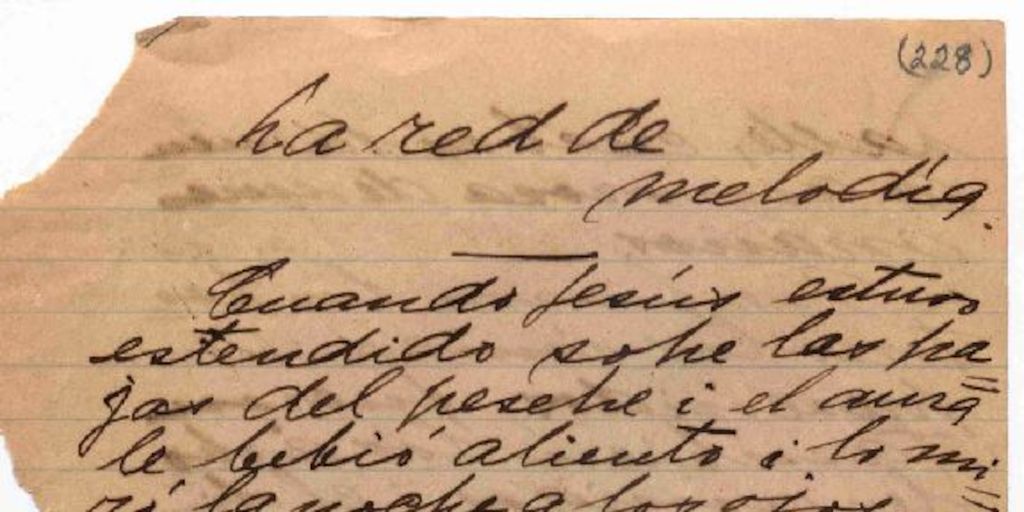 (228)
La red de
melodía.
Cuando Jesús estuvo
estendido sobre las pa=
jas del pesebre i el aura
le bebió aliento i lo mi=
ró la noche a los ojos